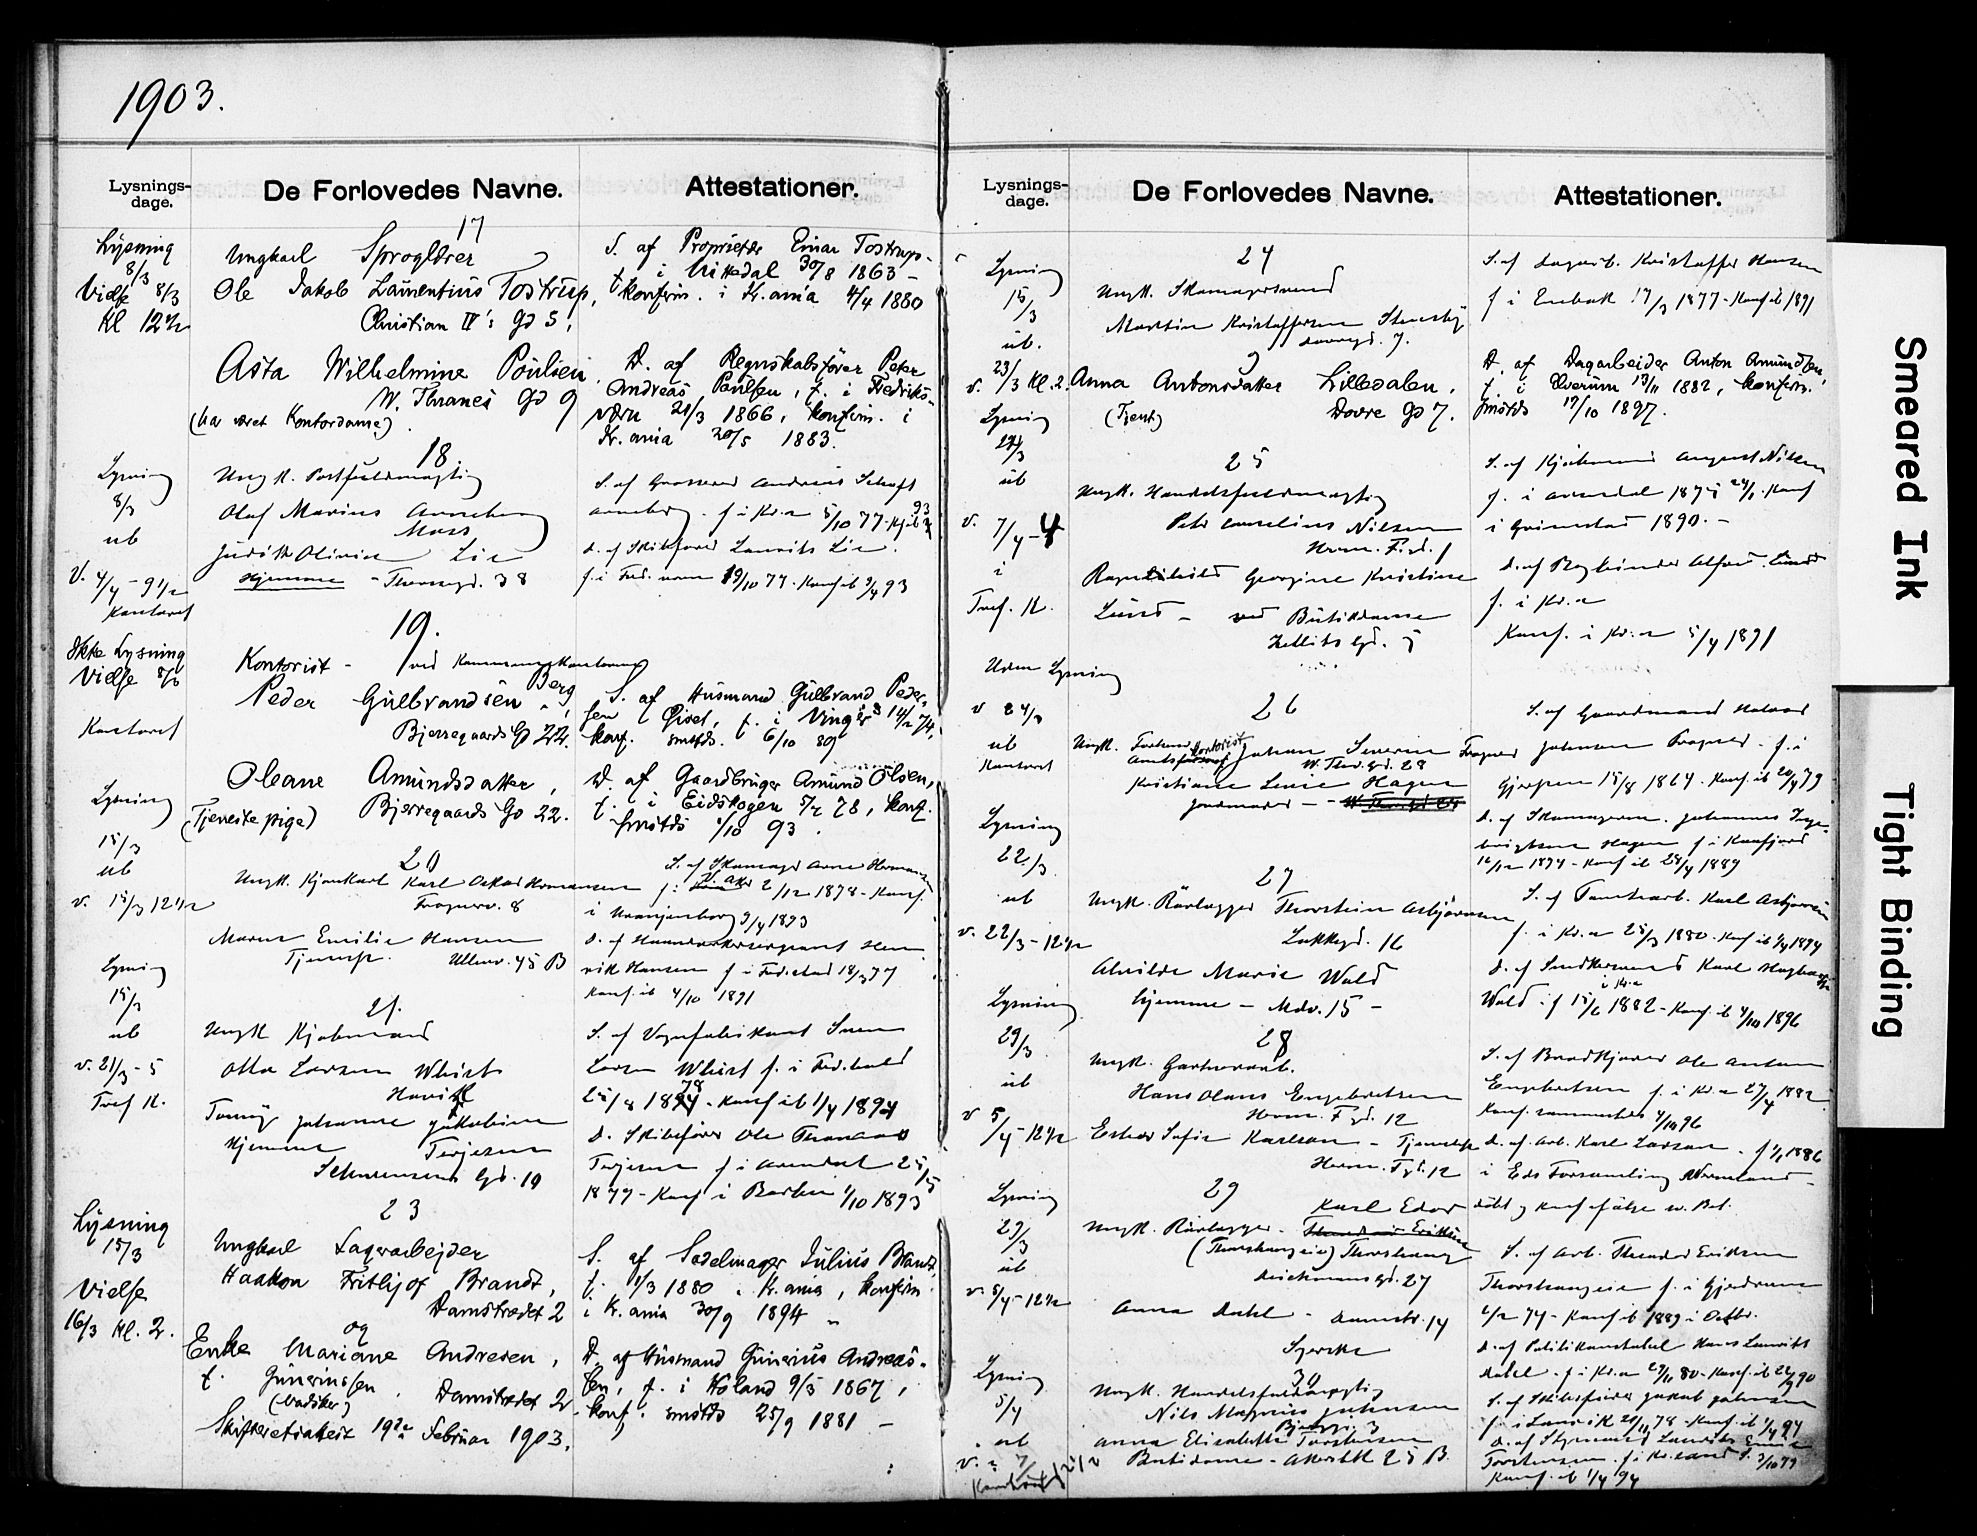 1903.
Lysnings-
dage.
De Forlovedes Navne.
Attestationer.
17
Lysning
8/3
Vielse 8/3
Kl 12½
Ungkarl Sproglærer
Ole Jakob Laurentius Tostrup,
Christian IV's Gd 5,
Asta Wilhelmine Poulsen,
W. Thranes Gd 9
(har været Kontordame).
S. af Proprietær Einar Tostrup,
f. i Nittedal 30/8 1863 –
konfirm. i Kr.ania 4/4 1880
D. af Regnskabsfører Peter
Andreas Paulsen, f. i Fredriks-
værn 21/3 1866, konfirm. i
Kr.ania 20/5 1883.
18
Lysning
8/3
ub
V. 4/4 – 9½
Kontoret
Ungk. Postfuldmægtig
Olaf Marius Anneberg
Moss
Judith Olivia Lie
Hjemme – Theresegd. 38
S. af Grosserer Andreas
Anneberg. f i Kr.a 5/10 77
d. af Skibsfører Laurits Lie.
f. i Fred. værn 19/10 77. Konf ib 9/4 93
19.
Ikke Lysning
Vielse
Kontoret
Kontorist – ved
Peder Gulbrandsen Berg,
Bjerregaards Gd 22.
Oleane Amundsdatter,
(Tjenestepige) Bjerregaards Gd 22.
S. af Husmand Gulbrand Peder-
sen f. i Vinger 14/2 74,
konf. smstds. 6/10 89
D. af Gaardbruger Amund Olsen,
f. i Eidskogen 5/2 78, konf.
smstds 1/10 93.
20
Lysning
15/3
ub
v. 15/3 12½
Ungk. Kjørekarl Karl Oskar Hermansen
Frognerv. 8
Maren Emilie Hansen
Tjenestp. Ullerv. 45 B
S. af Skomager Arne Hermansen
f. i V. Aker 2/12 1878 – Konf.
i Uranienborg 9/4 1893
d. af Haandverkersergeant Hen-
rik Hansen f i Fred.stad 18/3 77
Konf. ib 4/10 1891
21.
Lysning
15/3
ub
v. 21/3 – 5
Tref K.
Ungk Kjøbmand
Otto Larsen Whist
Tomny Johanne Jakobine
Hjemme Terjesen
Schwensens Gd. 10
S. af Vognfabrikant
Larsen Whist f. i Fred.hald
25/8 1874. Konf ib 1/4 1894
d. Skibsfører Ole Thomas
Terjesen f i Arendal 25/5
1879 – Konf i Barbu 1/10 1893
23
Lysning
15/3
Vielse
16/3 Kl. 2.
Ungkarl Lagerarbejder
Haakon Frithjof Brandt,
Damstrædet 2
og
Enke Mariane Andresen,
f. Gunerinssen,
(Vadsker) Damstrædet 2
Skifteretsattest 19de Februar 1903.
S. af Sadelmager Julius Brandt,
f. 1/3 1880 i Kr.ania, konfirm.
i Kr.ania 30/9 1894 „
D. af Husmand Gunerius Andreas-
sen, f. i Høland 9/5 1867,
konf. smstds 25/9 1881 –
Lysnings-
dage.
De Forlovedes Navne.
Attestationer.
24
Lysning
15/3
ub.
v. 23/3 Kl. 2.
Ungk. Skomagersvend
Martin Kristoffersen Stensby
Dovregd. 7.
Anna Antonsdatter Lillesalen,
(Tjenst.) Dovre Gd 7.
S. af Dagarb. Kristoffer Hansen
f i Enebak 17/3 1877 – Konf ib 1891
D. af Dagarbeider Anton Amundsen,
f. i Elverum 13/11 1882, konfirm.
smstds 17/10 1897.
25
Lysning
ub
v. 7/4 – 4
i
Tref. K.
Ungk. Handelsfuldmægtig
Petr Cornelius Nilsen
Herm. F. gd. 1
Ragnhild Georgine Kristine
Lund – ved Butikdame
Zetlitz Gd. 5
S. af Kjøbmand August Nilsen
f. i Arendal 1875 Konf
i Grimstad 1890. –
d. af Bogbinder Alfred Lund
f. i Kr.a
Konf. i Kr.a 5/4 1891
26
Uden Lysning
v 24/3
ub
Kontoret
Ungk. Kontorist Johan Severin Fragner
W. Thr. gd. 28
Kristiane Lovise Hagen
S. af Gaardmand Halvor
Johnsen Fragner. f. i
Gjerpen 15/8 1864. Konf. ib 20/4 79
d. af Skomagerm. Johannes Inge-
brigtsen Hagen f i Konfjord
16/12 1874 – Konf ib 28/4 1889
27
Lysning
22/3
ub
v. 22/3 – 12½
Ungk. Rørlægger Thorstein Asbjørnsen
Lakkegd. 16
Alvilde Marie Wold
Hjemme – Mdv. 15 –
S. af Tomtearb. Karl Asbjørnsen
f. i Kr.a 25/3 1880. Konf ib 1894
d. af Snedkersvend Karl
i Kr.a
Wold. f 15/6 1882 – Konf ib 4/10 1896
28
Lysning
29/3
ub
v 5/4 – 12½
Ungk. Gartnerarb.
Hans Olaus Engebretsen
Herm. F gd. 12
Ester Sofie Karlson – Tjenestp
Herm. F gd. 12
S. af Brødkjører Ole Antam
Engebretsen f. i Kr.a 27/4 1882
Konf. sammesteds 4/10 96
d. af Arb. Karl Larson. f 1/1 1886
i Eds Forsamling Wermland –
døbt og konf ifølge sv. Bet.
29
Lysning
29/3
ub
v. 5/4 – 12½
Ungk. Rørlægger – Karl Edor
(Thorshaugeie) Thorshaug
Deichmansgd. 27
Anna Dahl – Damstr. 14
Syerske
S. af Arb. Theodor Eriksen
Thorshaugeie f. i Gjerdrum
6/2 74 – Konf ib 1889 i Octbr.
d. af Politikonstabel Hans Lauritz
Dahl. f i Kr.a 29/11 80 – Konf. ib 90
30
Lysning
5/4
ub
Kontoret
Ungk. Handelsfuldmægtig
Nils Magnus Johnsen
Anna Elisabethe Torstensen
Butikdame – Akersbk 25 B.
S. af Skibsfører Jakob Johnsen
f. i Larvik 20/11 78 – Konf. ib 1/4 94
d. af Styrmand Laurits
Torstensen. f i Kr.sand S. 3/10 79
Konf. ib 1/4 94
Smeared Ink
Tight Binding